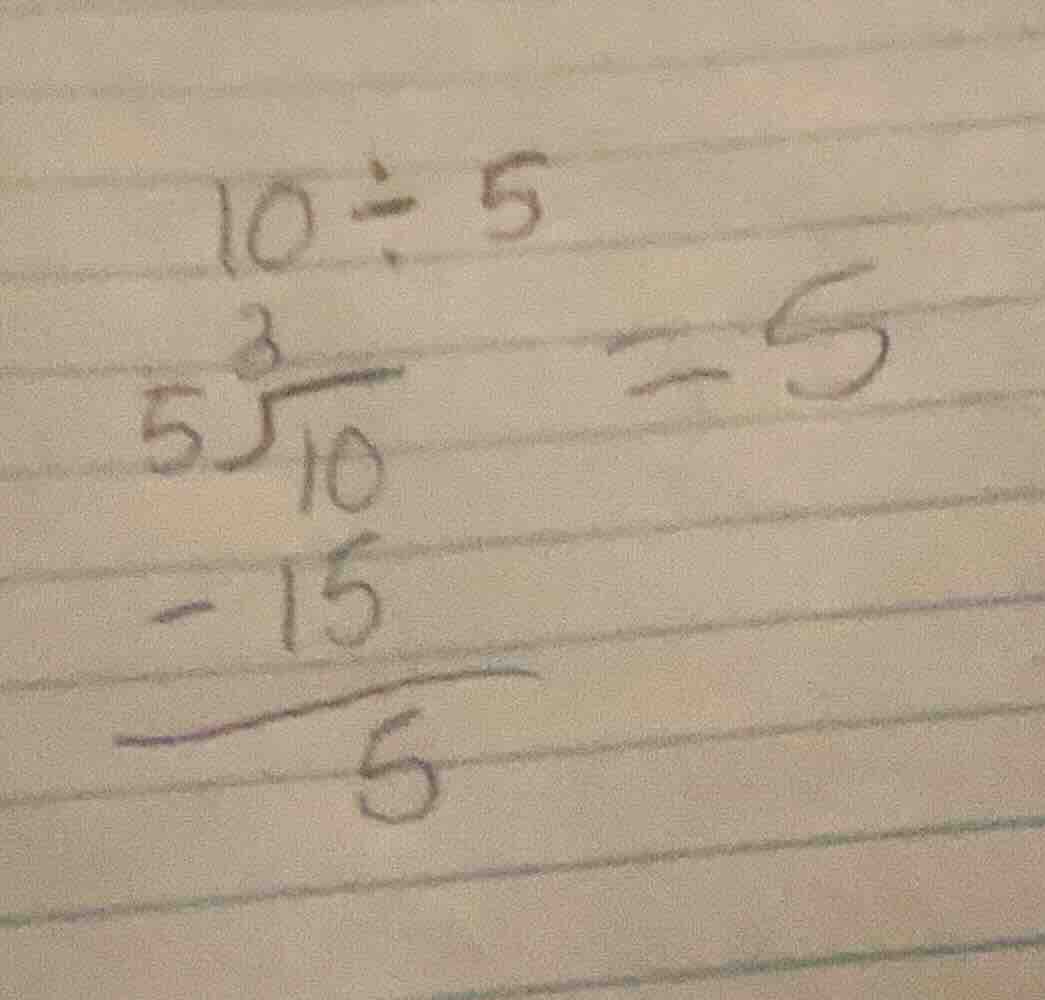 10 ÷ 5
3
5√10 = 5
- 15
5